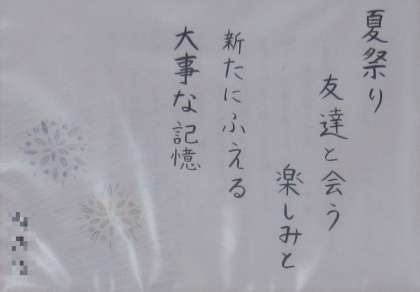 夏祭り
友達と会う
楽しみと
新たにふえる
大事な記憶